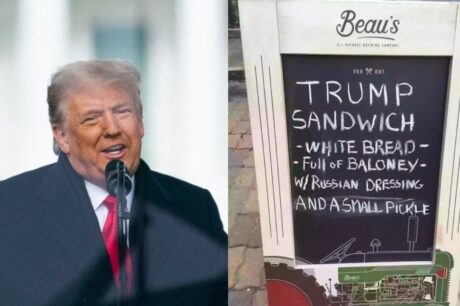 Beau's
ALL NATURAL BREWING COMPANY
TRUMP
SANDWICH
- WHITE BREAD -
- FULL OF BALONEY -
W/ RUSSIAN DRESSING
AND A SMALL PICKLE
Beau's